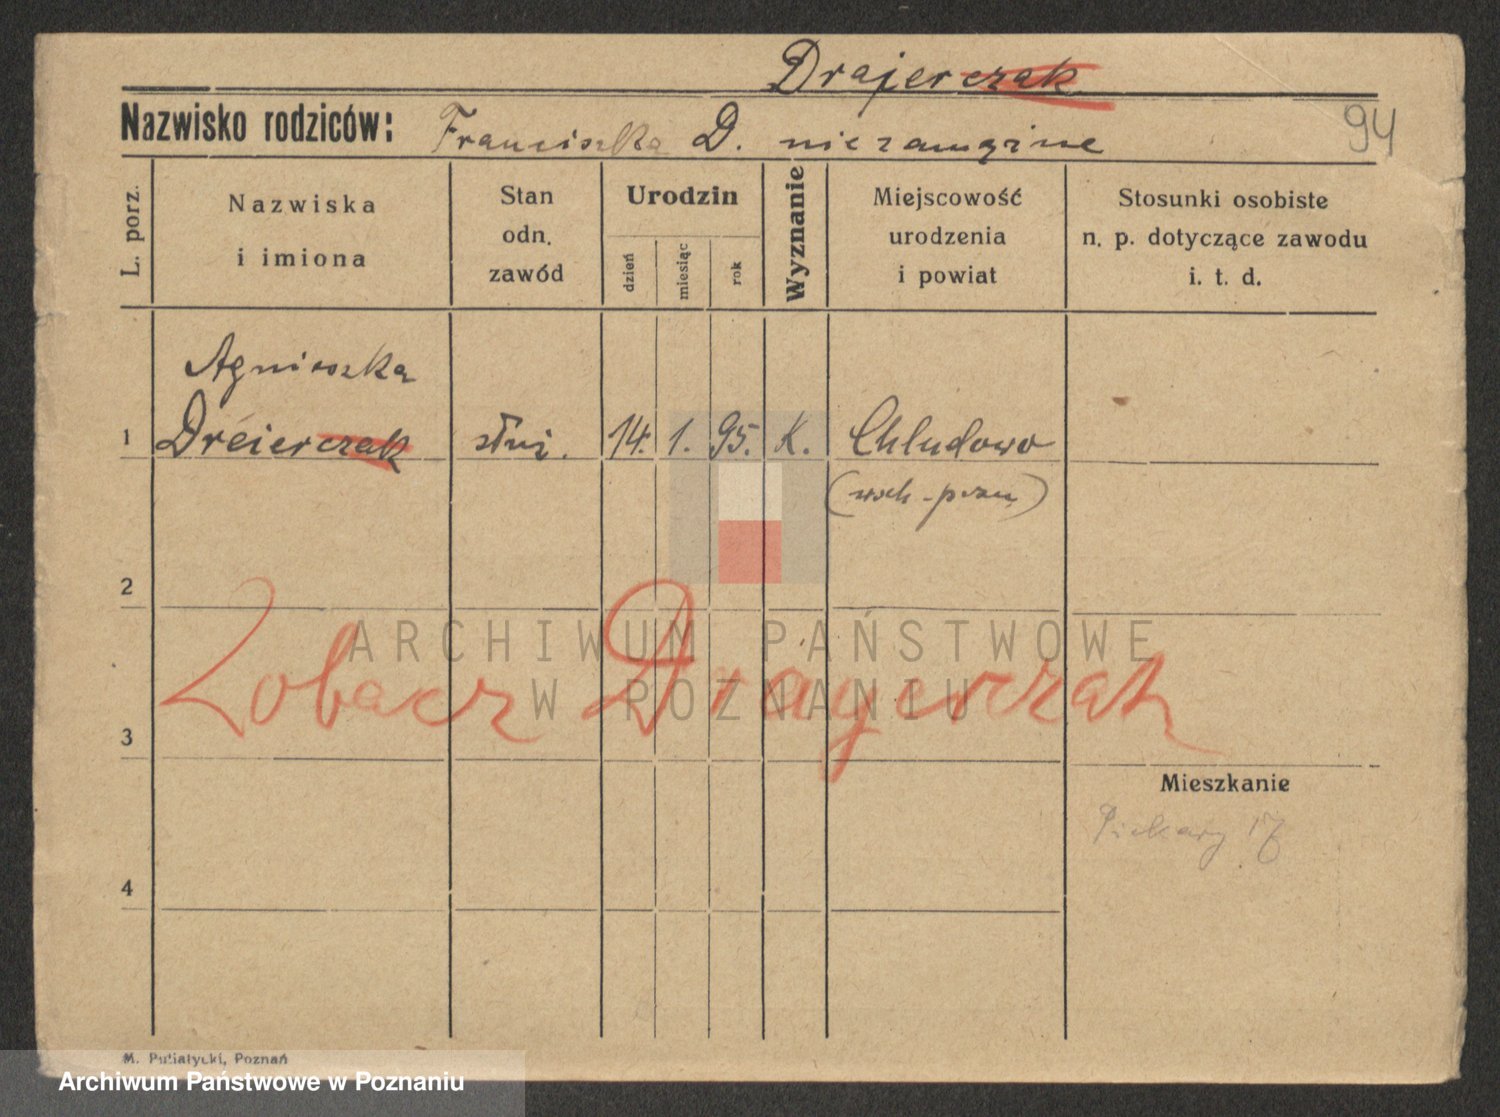 Drajerczak
Nazwisko rodziców: Franciszka D. niezamężne
94
L. porz.
Nazwiska
i imiona
Stan
odn.
zawód
Urodzin
dzień
miesiąc
rok
Wyznanie
Miejscowość
urodzenia
i powiat
Stosunki osobiste
n. p. dotyczące zawodu
i. t. d.
Agnieszka
1 Dreierczak służ. 14. 1. 95. K. Chludowo
(wsch - pozn)
2
ARCHIWUM PAŃSTWOWE
W POZNANIU
Zobacz Dragerczak
3
Mieszkanie
Piekary 17
4
M. Putiatycki, Poznań
Archiwum Państwowe w Poznaniu